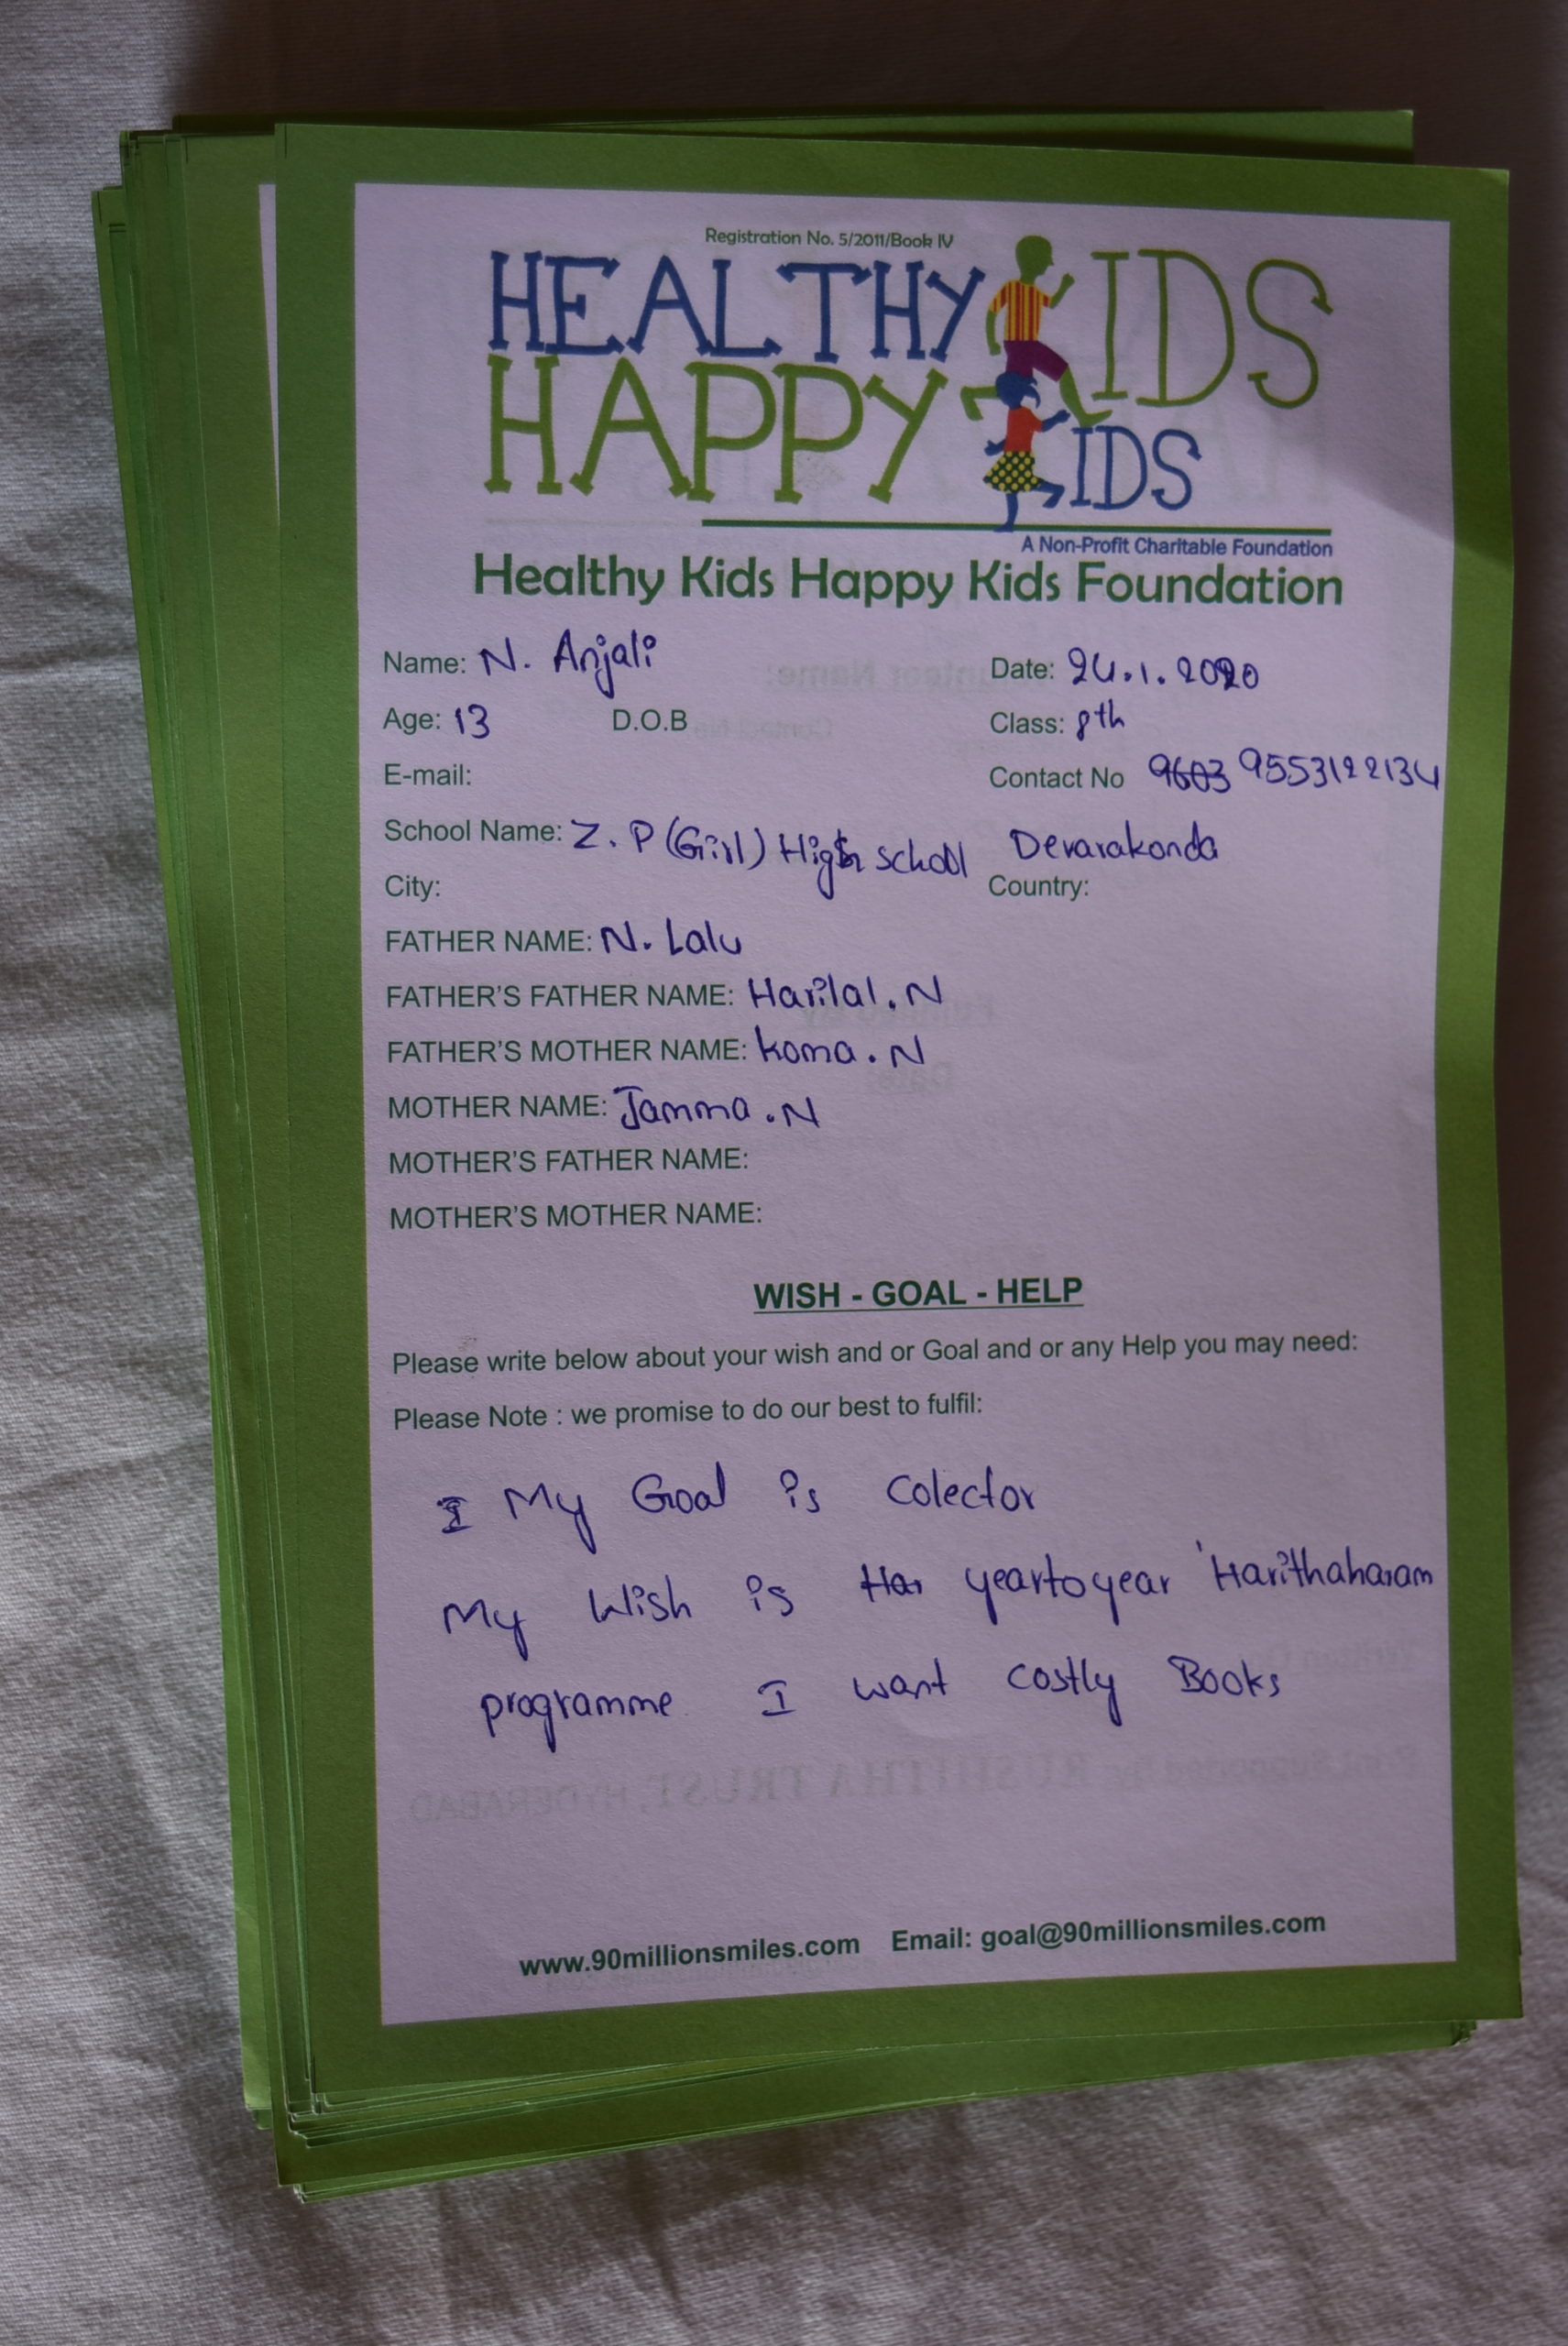 Registration No. 5/2011/Book IV
HEALTHY KIDS
HAPPY KIDS
A Non-Profit Charitable Foundation
Healthy Kids Happy Kids Foundation
Name: N. Anjali Date: 24.1.2020
Age: 13 D.O.B Class: 8th
E-mail: Contact No 9603 9553122134
School Name: Z. P (Girl) High school Devarakonda
City: Country:
FATHER NAME: N. Lalu
FATHER'S FATHER NAME: Harilal. N
FATHER'S MOTHER NAME: koma. N
MOTHER NAME: Jamma. N
MOTHER'S FATHER NAME:
MOTHER'S MOTHER NAME:
WISH - GOAL - HELP
Please write below about your wish and or Goal and or any Help you may need:
Please Note : we promise to do our best to fulfil:
I My Goal is Colector
My Wish is Har yeartoyear 'Harithaharam
programme I want costly Books
www.90millionsmiles.com Email: goal@90millionsmiles.com